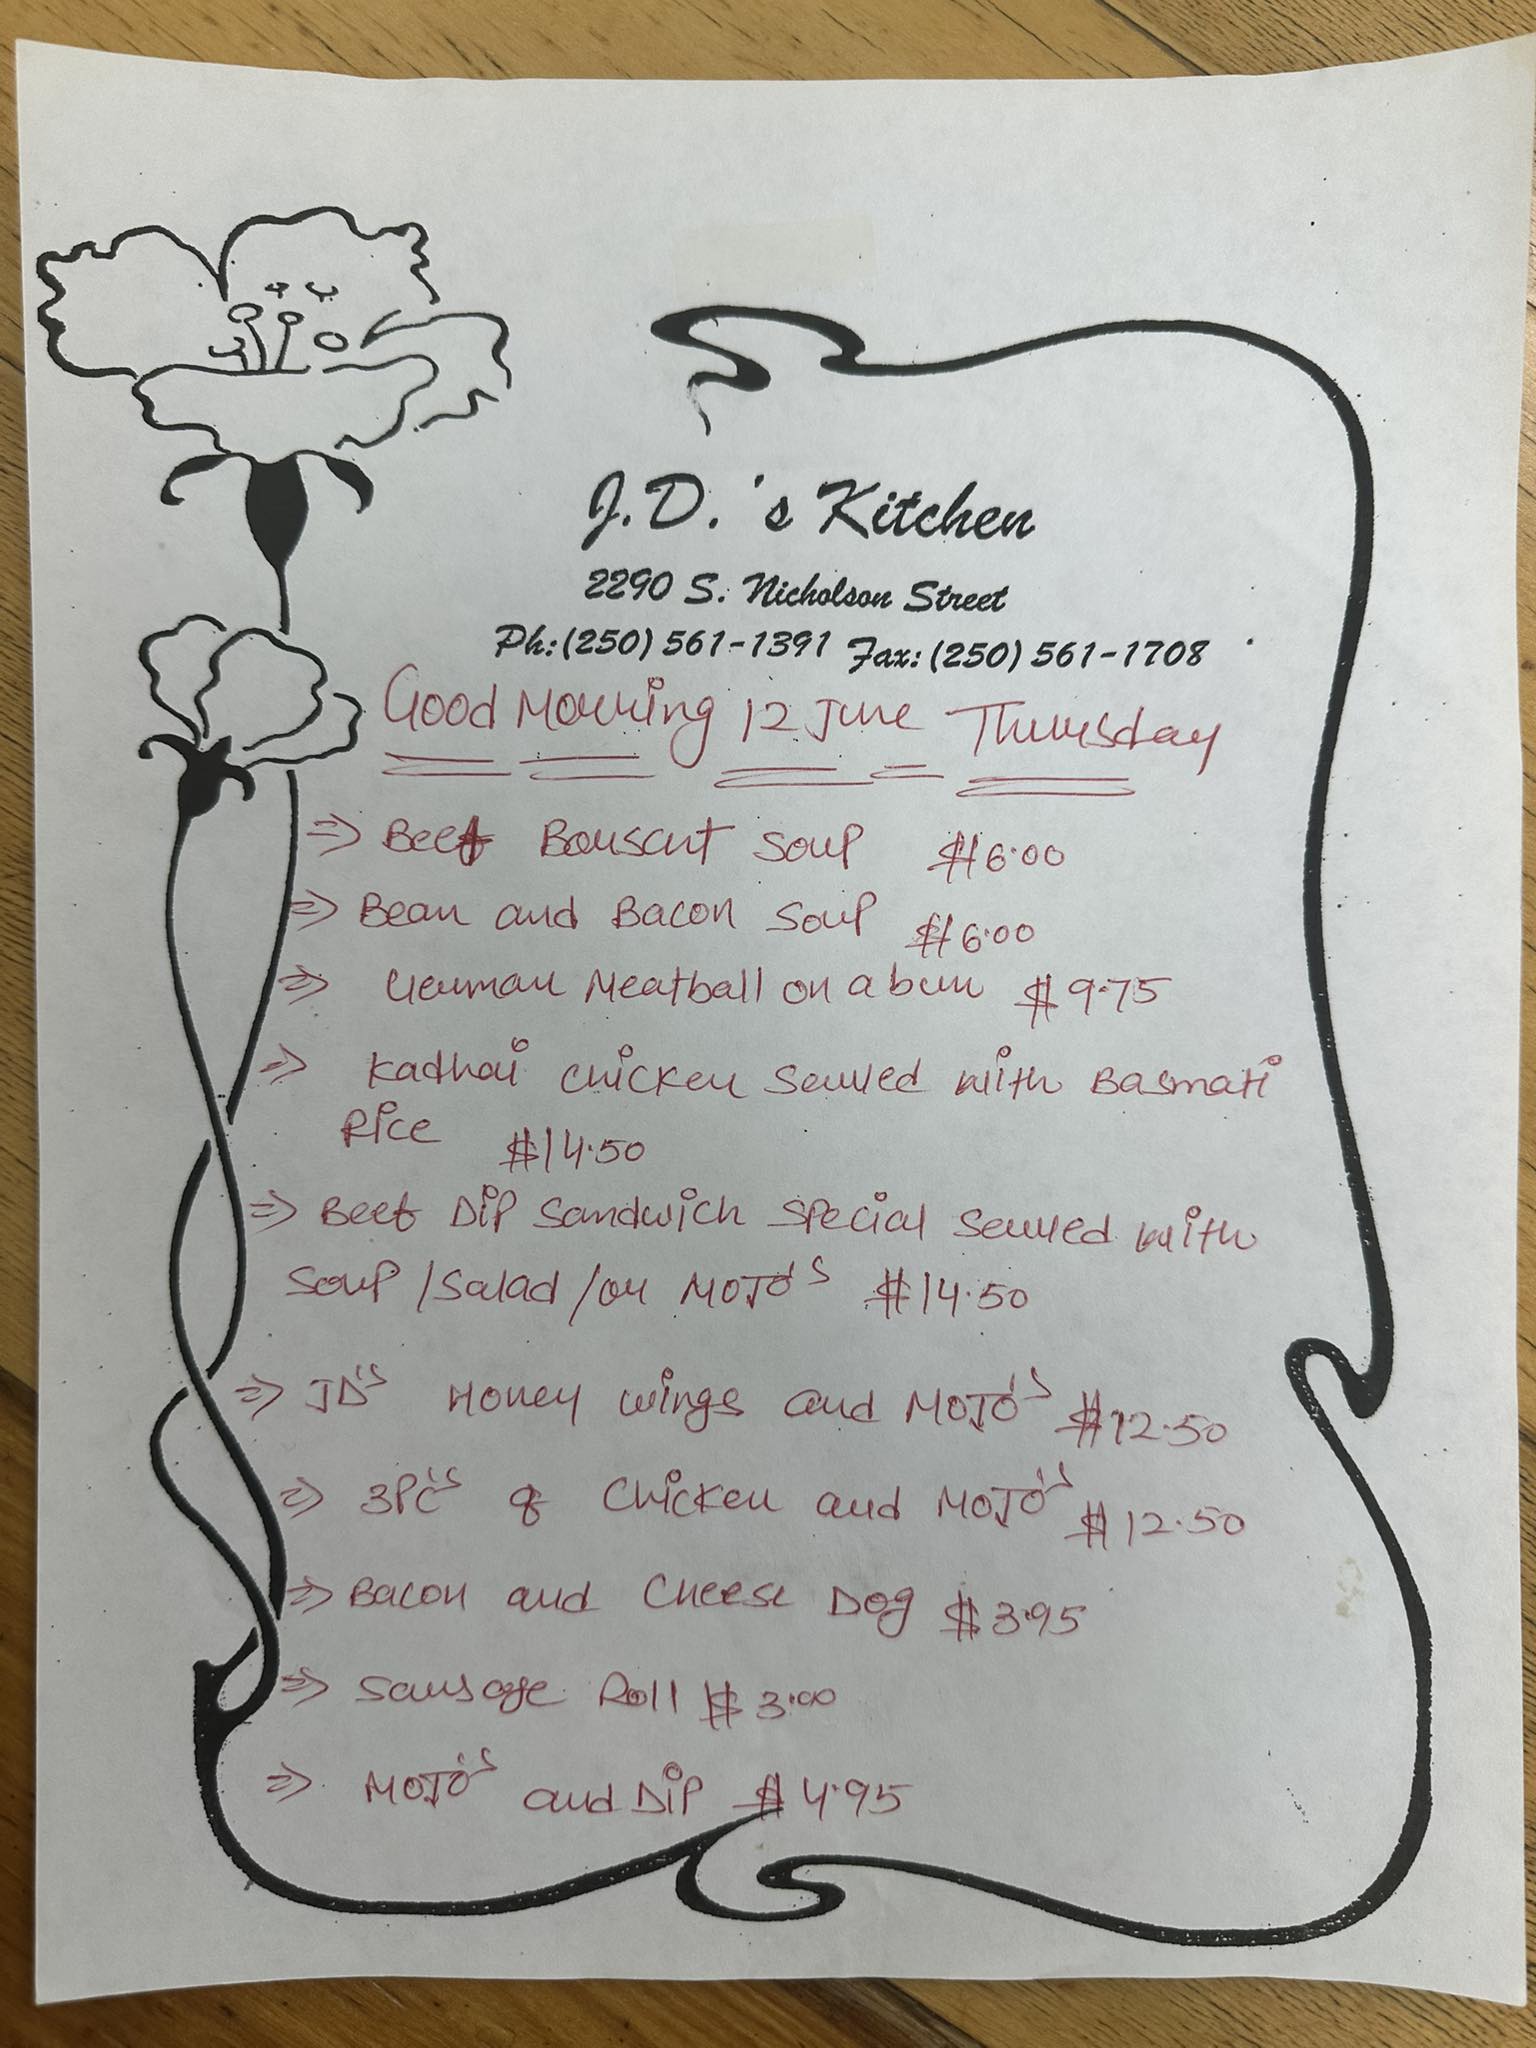 J.D.'s Kitchen
2290 S. Nicholson Street
Ph: (250) 561-1391 Fax: (250) 561-1708
Good Morning 12 June Thursday
⇒ Beef Bouscut Soup $6.00
⇒ Bean and Bacon Soup $6.00
⇒ German Meatball on a bun $9.75
⇒ Kadhai Chicken Served with Basmati
Rice $14.50
⇒ Beef Dip Sandwich Special Served with
Soup /Salad /or MOJO'S $14.50
⇒ JD'S Honey wings and MOJO'S $12.50
⇒ 3PC'S of Chicken and MOJO'S $12.50
⇒ Bacon and Cheese Dog $3.95
⇒ Sausage Roll $3.00
⇒ MOJO'S and Dip $4.95